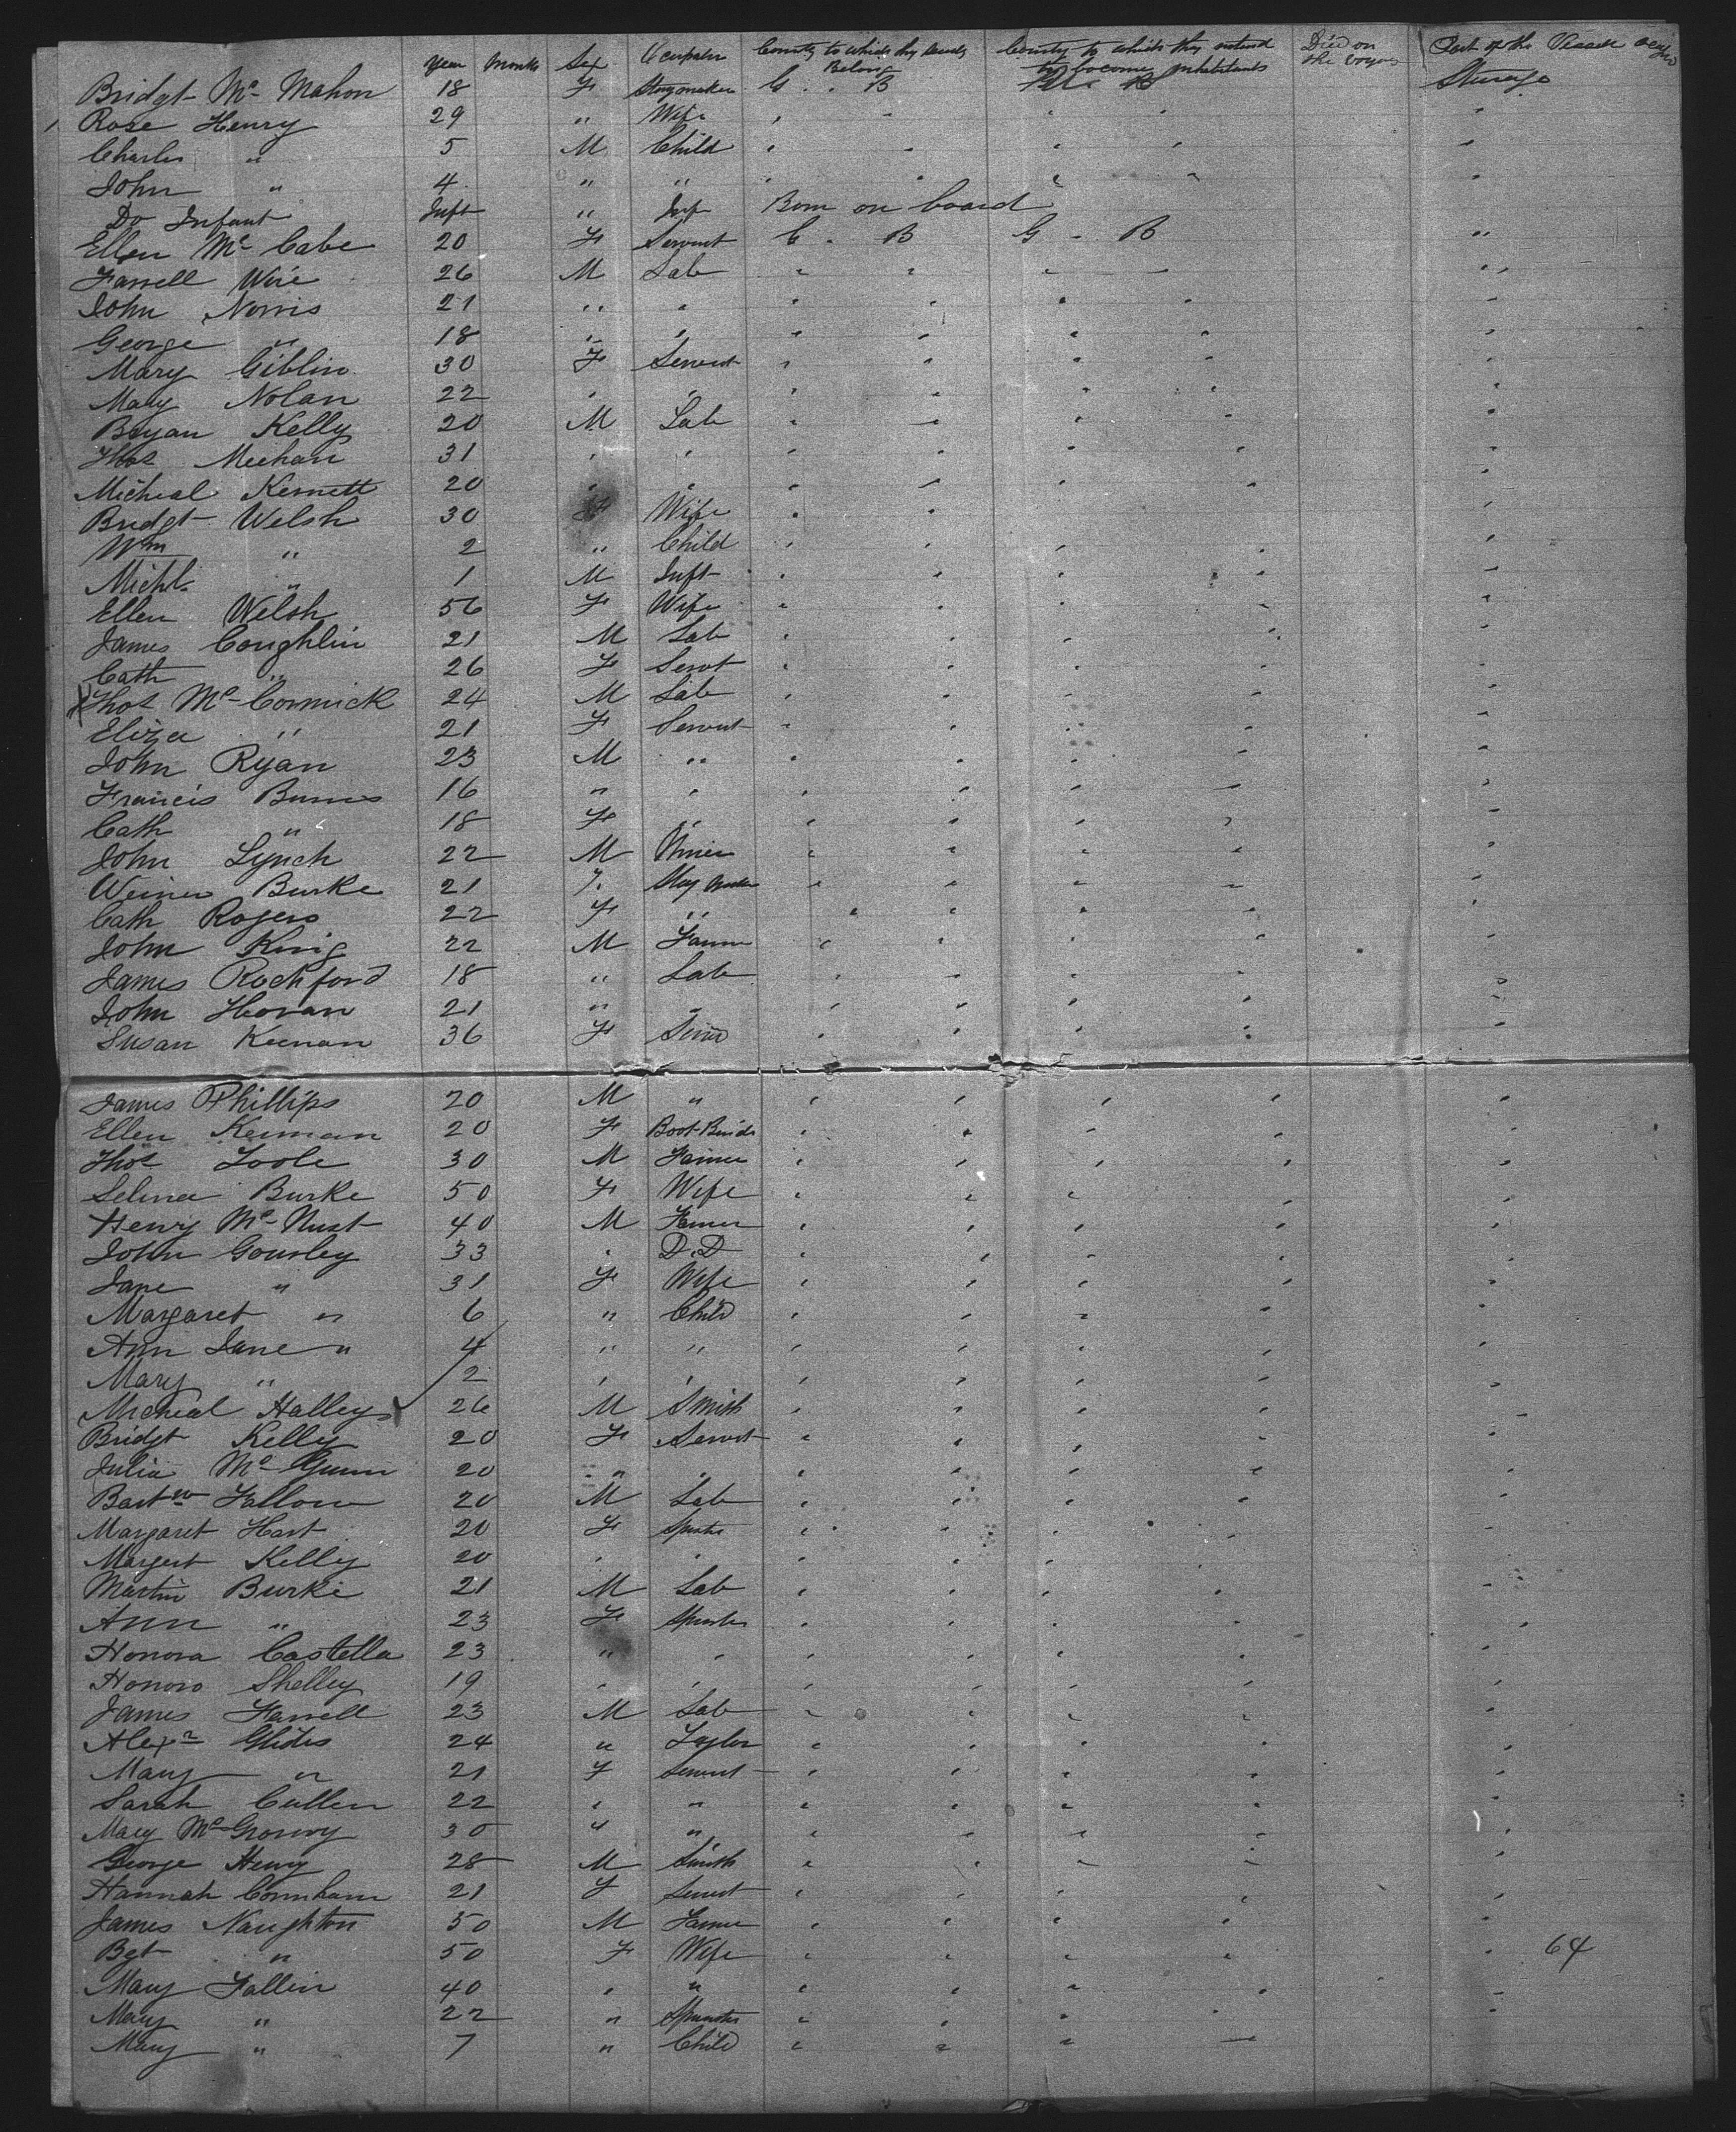 Year Months Sex Occupation Country to which they severally Belong Country to which they intend to become inhabitants Died on the voyage Part of the Vessel occupied
Bridgt Mc Mahon 18 F Staymaker G. B B Steerage
Rose Henry 29 " Wife
Charles " 5 M Child
John " 4 " "
Do Infant Inft " Inf Born on board
Ellen Mc Cabe 20 F Servant G - B G - B "
Farrell Wire 26 M Lab
John Norris 21 " "
George " 18 " "
Mary Giblin 30 F Servant
Mary Nolan 22 " "
Bryan Kelly 20 M Lab
Thos Meehan 31 " "
Micheal Kernett 20 " "
Bridgt Welsh 30 F Wife
Wm " 2 " Child
Michl " 1 M Inft
Ellen Welsh 56 F Wife
James Coughlin 21 M Lab
Cath " 26 F Servt
X Thos Mc Cormick 24 M Lab
Eliza " 21 F Servant
John Ryan 23 M "
Francis Burns 16 " "
Cath " 18 F "
John Lynch 22 M
Burke 21 F. Stay Maker
Cath Rogers 22 F "
John King 22 M Farmer
James Rochford 18 " Lab
John Horan 21 " "
Susan Keenan 36 F
James Phillips 20 M "
Ellen Keenan 20 F Boot-Binder
Thos Toole 30 M Farmer
Selina Burke 50 F Wife
Henry Mc Nust 40 M Farmer
John Gourley 33 " D.D
Jane " 31 F Wife
Margaret " 6 " Child
Ann Jane " 4 " "
Mary " 2 " "
Micheal Halley 26 M Smith
Bridgt Kelly 20 F Servt
Julia Mc Gunn 20 " "
Bartw Fallow 20 M Lab
Margaret Hart 20 F Spinster
Margert Kelly 20 " "
Martin Burke 21 M Lab
Ann " 23 F Spinster
Honora Castella 23 " "
Honoro Shelley 19 " "
James Farrell 23 M Lab
Alexr Glides 24 " Taylor
Mary " 21 F Servant
Sarah Cullen 22 " "
Mary Mc 30 " "
George Henry 28 M Smith
Hannah 21 F Servt
James Naughton 50 M Farmer
Bgt " 50 F Wife 64
Mary Fallin 40 " "
Mary " 22 " Spinster
Mary " 7 " Child